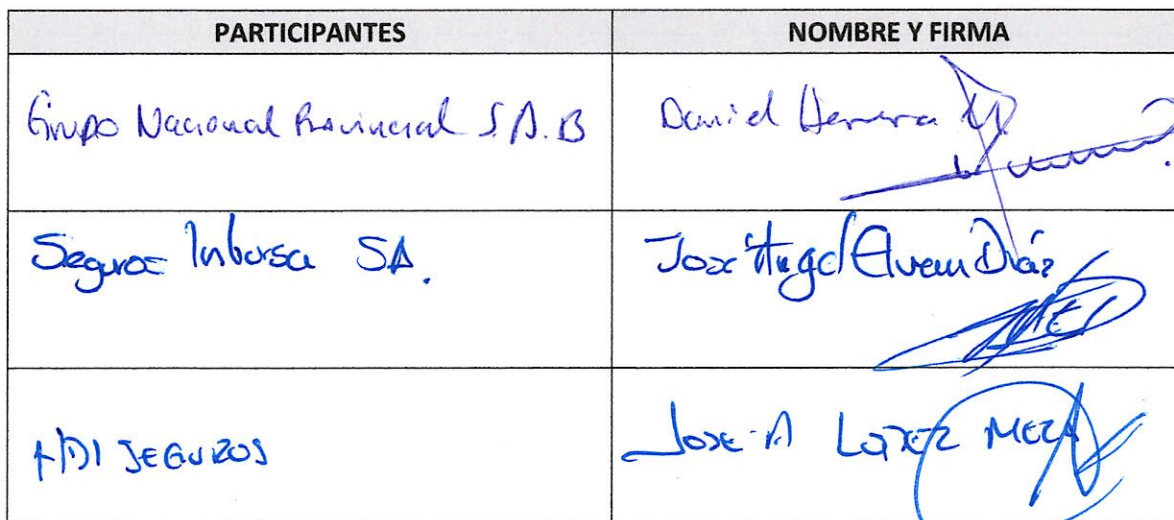 PARTICIPANTES NOMBRE Y FIRMA
Grupo Nacional Provincial S.A.B Daniel Herrera
Seguros Inbursa SA. Jose Hugo Diáz
HDI SEGUROS JOSE A LOPEZ MEZA